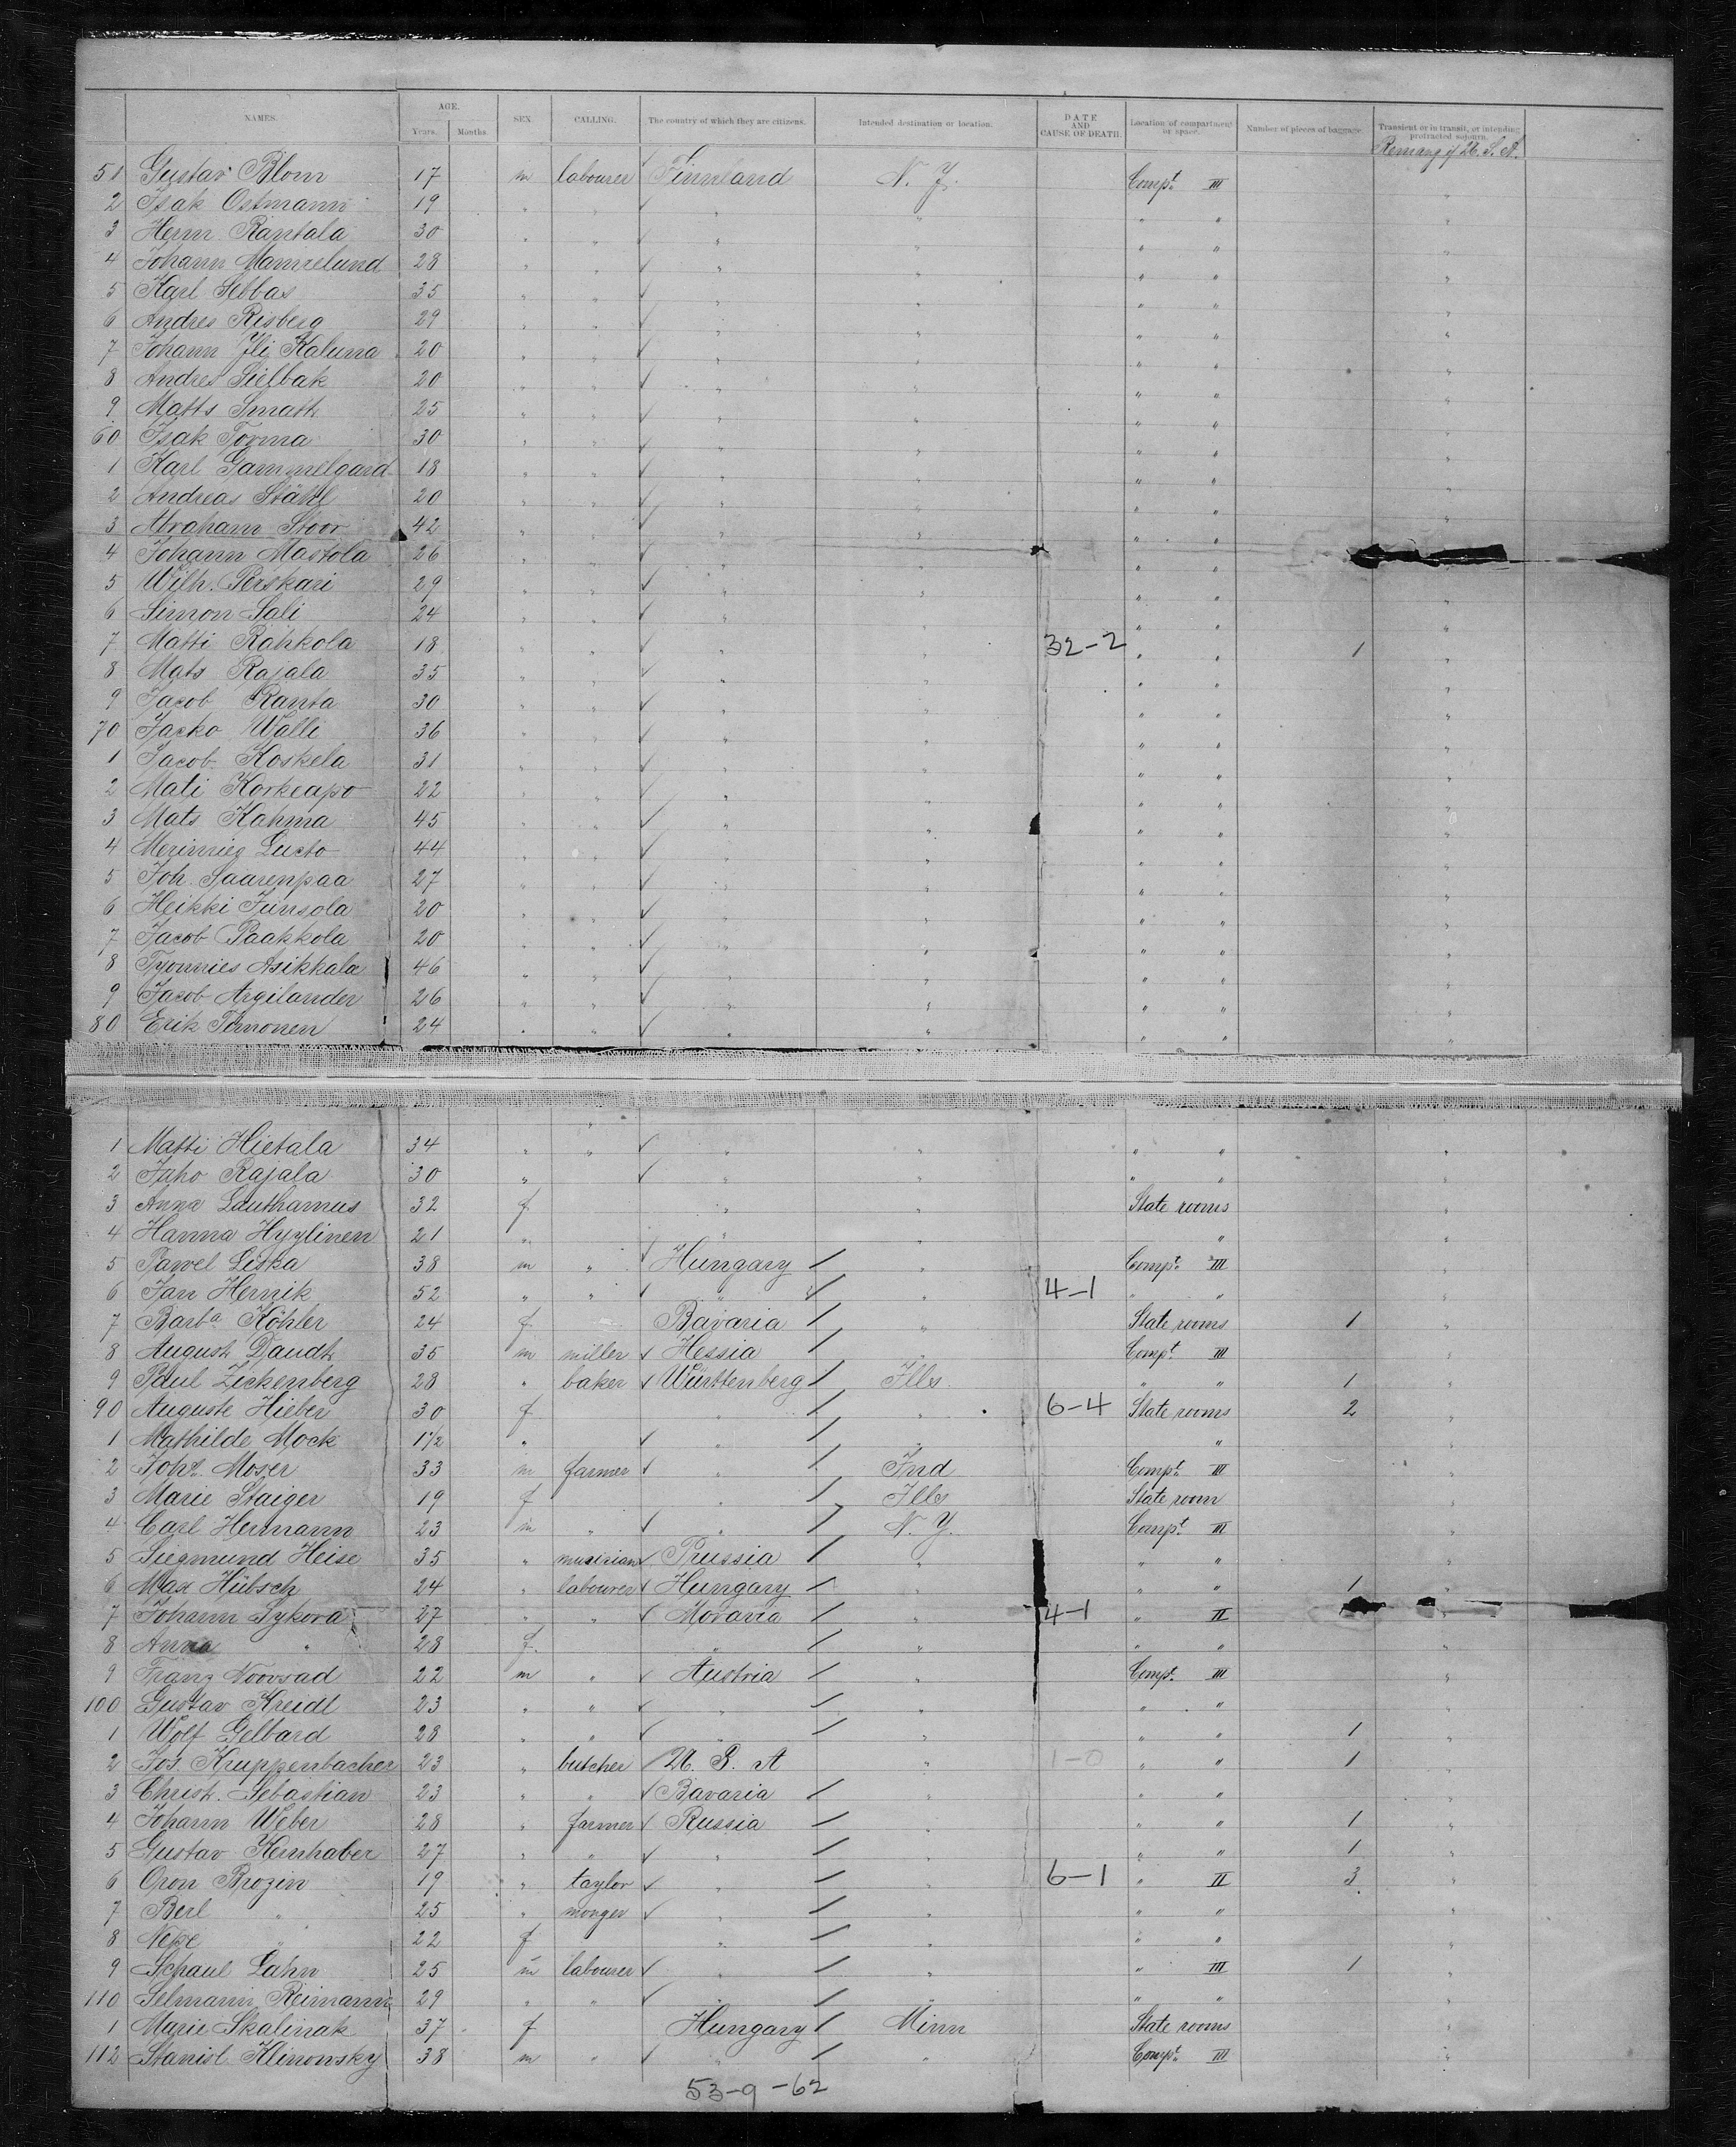 NAMES. AGE. Years. Months. SEX CALLING. The country of which they are citizens. Intended destination or location. DATE AND CAUSE OF DEATH. Location of compartment or space. Number of pieces of baggage. Transient or in transit, or intending protracted sojourn.
Remang of U. S. A.
51 Gustav Blom 17 m labourer ✓ Finnland N. Y. Compt. III
2 Isak Ostmann 19 " " ✓ " " " " "
3 Herm. Rantala 30 " " ✓ " " " " "
4 Johann Mamrelund 28 " " ✓ " " " " "
5 Karl Sebbas 35 " " ✓ " " " " "
6 Andres Risberg 29 " " ✓ " " " " "
7 Johann Yli Kaluna 20 " " ✓ " " " " "
8 Andres Sielbak 20 " " ✓ " " " " "
9 Matts Smath 25 " " ✓ " " " " "
60 Isak Torma 30 " " ✓ " " " " "
1 Karl Gammelgard 18 " " ✓ " " " " "
2 Andreas Ståhl 20 " " ✓ " " " " "
3 Abraham Stoor 42 " " ✓ " " " " "
4 Johann Mastola 26 " " ✓ " " " "
5 Wilh. Perskari 29 " " ✓ " " " " "
6 Simon Sali 24 " " ✓ " " " " "
7 Matti Rahkola 18 " " ✓ " " 32-2 " " 1 "
8 Mats Rajala 35 " " ✓ " " " " "
9 Jacob Ranta 30 " " ✓ " " " " "
70 Jacko Walli 36 " " ✓ " " " " "
1 Jacob Koskela 31 " " ✓ " " " " "
2 Mati Korkeapo 22 " " ✓ " " " " "
3 Mats Kahma 45 " " ✓ " " " " "
4 Lucto 44 " " ✓ " " " " "
5 Joh. Saarenpaa 27 " " ✓ " " " " "
6 Heikki Junsola 20 " " ✓ " " " " "
7 Jacob Paakkola 20 " " ✓ " " " " "
8 Tyonnies Asikkala 46 " " ✓ " " " " "
9 Jacob Argilander 26 " " ✓ " " " " "
80 Erik Timonen 24 " " ✓ " " " " "
1 Matti Hietala 34 " " ✓ " " " " "
2 Juho Rajala 30 " ✓ " " " " "
3 Anna Lauthamus 32 f " " State rooms "
4 Hanna Hyylinen 21 " " " " "
5 Pawel Liska 38 m " ✓ Hungary / " Compt. III "
6 Jan Hernik 52 " " ✓ " / " 4-1 " " "
7 Barba Köhler 24 f Bavaria / " State rooms 1 "
8 August Daudt 35 m miller ✓ Hessia / " Compt. III "
9 Paul Zickenberg 28 " baker ✓ Württenberg / Ills. " " 1 "
90 Auguste Hieber 30 f " / " 6-4 State rooms 2 "
1 Mathilde Mock 1 1/2 " ✓ " / " " "
2 Joh. Moser 33 m farmer ✓ " / Ind Compt. III "
3 Marie Staiger 19 f " / Ills State room "
4 Carl Hermann 23 m " ✓ " / N. Y. Compt. III "
5 Siegmund Heise 35 " musician ✓ Prussia / " " " "
6 Max Hübsch 24 " labourer ✓ Hungary / " " " 1 "
7 Johann Sykora 27 " " ✓ Moravia / " 4-1 " II
8 Anna " 28 f " / " " " "
9 Franz Noovsad 22 m " ✓ Austria / " Compt. III "
100 Gustav Kreidl 23 " " ✓ " / " " " "
1 Wolf Gelbard 28 " " ✓ " / " " " 1 "
2 Jos. Kruppenbacher 23 " butcher / U. S. A " 1-0 " " 1 "
3 Christ. Sebastian 23 " " ✓ Bavaria / " " " "
4 Johann Weber 28 " farmer ✓ Russia / " " " 1 "
5 Gustav Kernhaber 27 " " ✓ " / " " " 1 "
6 Oron Brozin 19 " taylor ✓ " / " 6-1 " II 3 "
7 Berl " 25 " monger ✓ " / " " " "
8 " 22 f " / " " " "
9 Schaul Lahn 25 m labourer ✓ " / " " III 1 "
110 Selmann Reimann 29 " " ✓ " / " " " "
1 Marie Skalinak 37 f Hungary / Minn State rooms "
112 Stanisl. Klinowsky 38 m " ✓ " / " Compt. III "
53-9-62